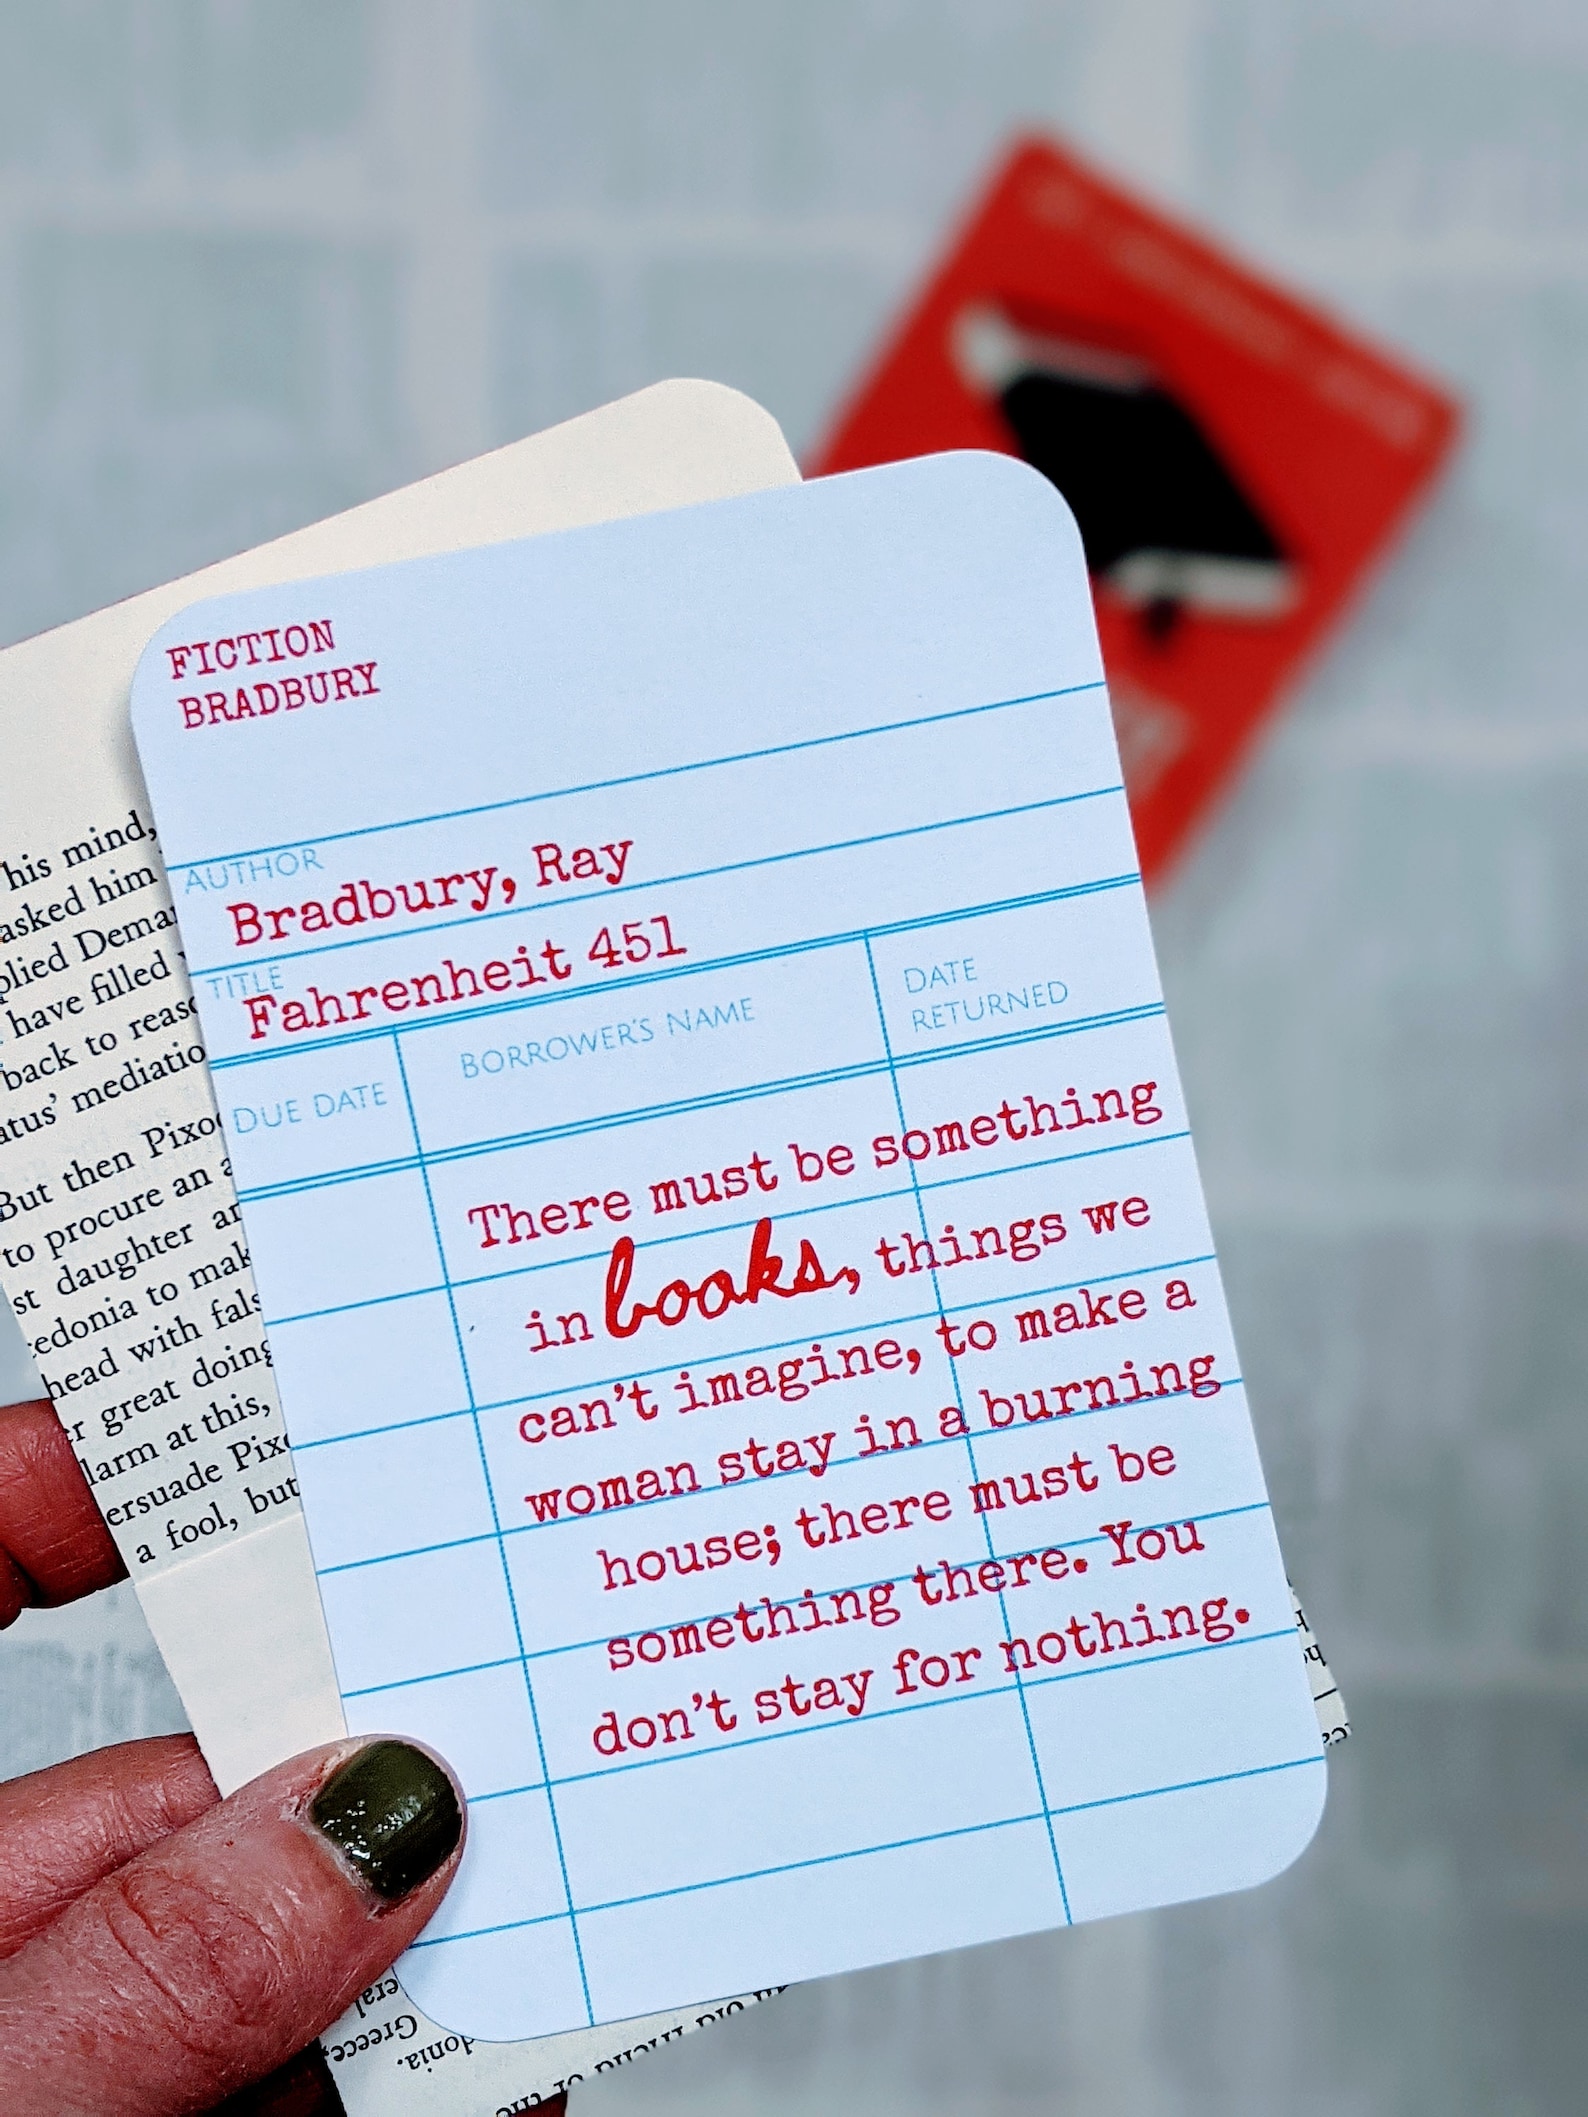 FICTION
BRADBURY
AUTHOR
Bradbury, Ray
TITLE
Fahrenheit 451
DUE DATE
BORROWER'S NAME
DATE
RETURNED
There must be something
in books, things we
can't imagine, to make a
woman stay in a burning
house; there must be
something there. You
don't stay for nothing.
his mind,
asked him
have filled
back to
mediatio
But then
to procure an
st daughter
to mak
head with
great doing
larm at this,
a fool, but
Greece,
donia.